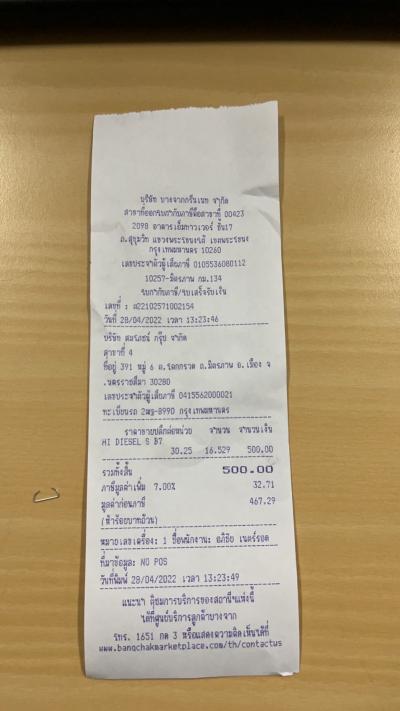 บริษัท บางจากกรีนเนท จำกัด
สาขาที่ออกใบกำกับภาษีคือสาขาที่ 00423
2098 อาคารเอ็มทาวเวอร์ ชั้น7
ถ.สุขุมวิท แขวงพระโขนงใต้ เขตพระโขนง
กรุงเทพมหานคร 10260
เลขประจำตัวผู้เสียภาษี 0105536080112
10257-มิตรภาพ กม.134
ใบกำกับภาษี/ใบเสร็จรับเงิน
เลขที่ : 22102571002154
วันที่ 28/04/2022 เวลา 13:23:46
บริษัท กรุ๊ป จำกัด
สาขาที่ 4
ที่อยู่ 391 หมู่ 6 ต.โคกกรวด ถ.มิตรภาพ อ.เมือง จ
.นครราชสีมา 30280
เลขประจำตัวผู้เสียภาษี 0415562000021
ทะเบียนรถ 8990 กรุงเทพมหานคร
ราคาขายปลีกต่อหน่วย จำนวน จำนวนเงิน
HI DIESEL S B7
30.25 16.529 500.00
รวมทั้งสิ้น 500.00
ภาษีมูลค่าเพิ่ม 7.00% 32.71
มูลค่าก่อนภาษี 467.29
(ห้าร้อยบาทถ้วน)
หมายเลขเครื่อง: 1 ชื่อพนักงาน: อภิชัย เนตร์รอด
ที่มาข้อมูล: NO POS
วันที่พิมพ์ 28/04/2022 เวลา 13:23:49
แนะนำ ติชมการบริการของสถานีฯแห่งนี้
ได้ที่ศูนย์บริการลูกค้าบางจาก
โทร. 1651 กด 3 หรือแสดงความคิดเห็นได้ที่
www.bangchakmarketplace.com/th/contactus